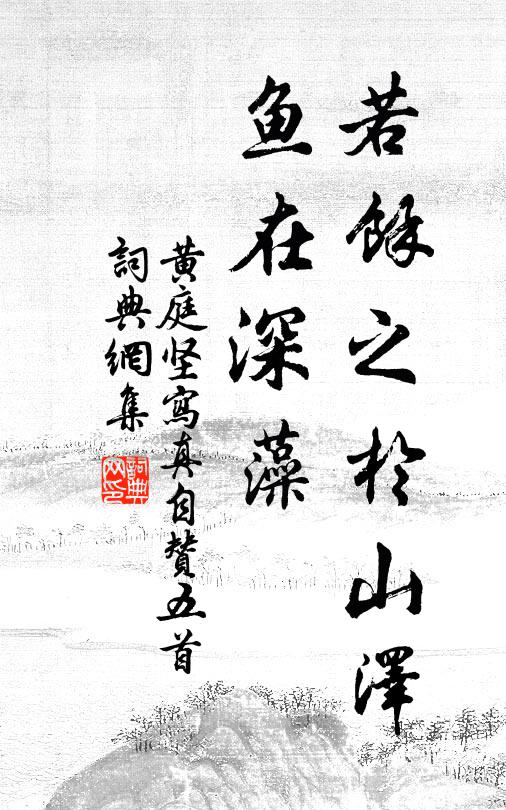 若餘之於山澤
鱼在深藻
黄庭坚寫真自贊五首
詞典網集
詞典網印